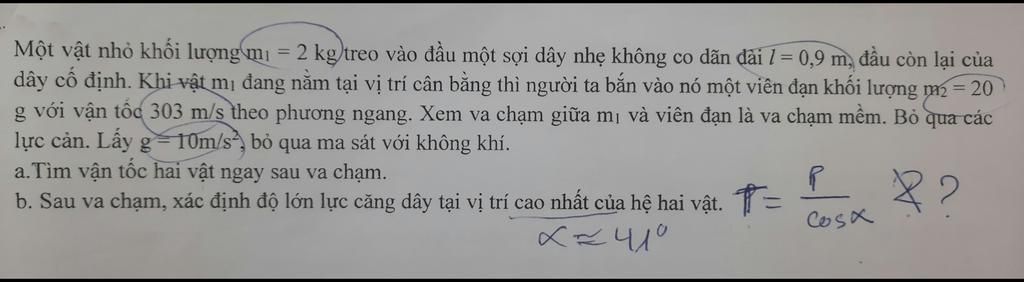 Một vật nhỏ khối lượng m₁ = 2 kg treo vào đầu một sợi dây nhẹ không co dãn dài l = 0,9 m, đầu còn lại của
dây cố định. Khi vật m₁ đang nằm tại vị trí cân bằng thì người ta bắn vào nó một viên đạn khối lượng m₂ = 20
g với vận tốc 303 m/s theo phương ngang. Xem va chạm giữa m₁ và viên đạn là va chạm mềm. Bỏ qua các
lực cản. Lấy g = 10m/s², bỏ qua ma sát với không khí.
a.Tìm vận tốc hai vật ngay sau va chạm.
b. Sau va chạm, xác định độ lớn lực căng dây tại vị trí cao nhất của hệ hai vật. T = P/cosα ?
α ≈ 41°